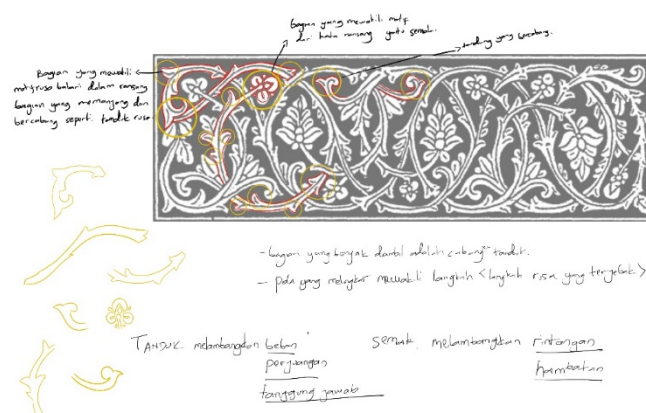 bagian yang mewakili motif
dari kata ransang yaitu semak.
tanduk yang bercabang.
Bagian yang mewakili
motif rusa balari dalam ransang
bagian yang memanjang dan
bercabang seperti tanduk rusa
- bagian yang banyak diambil adalah cabang" tanduk.
- pola yang melingkar mewakili langkah <langkah rusa yang terjebak>
TANDUK melambangkan beban
perjuangan
tanggung jawab
semak melambangkan rintangan
hambatan